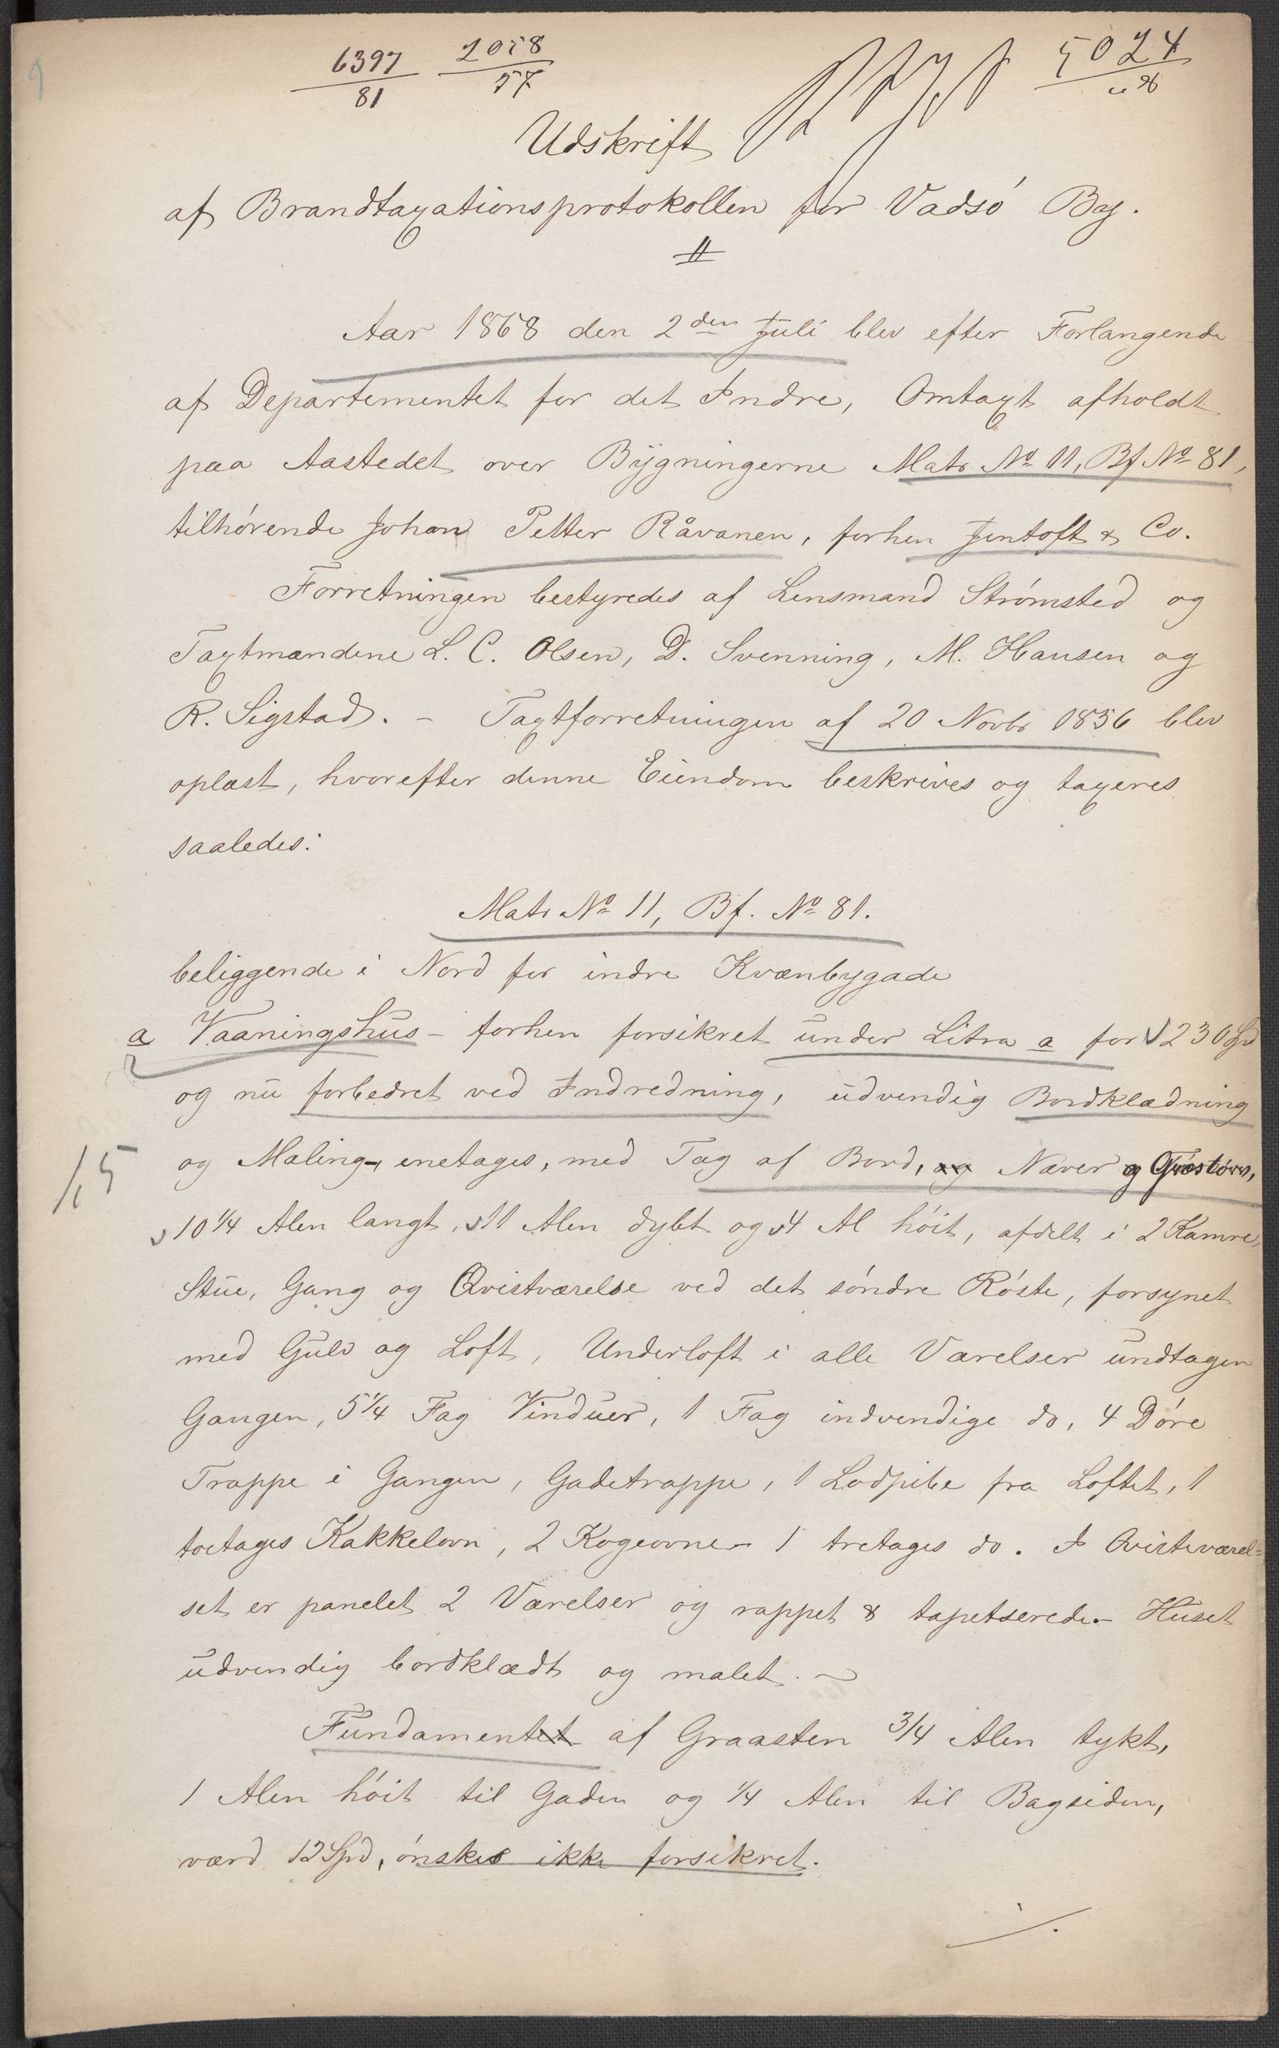 6397 2058 5024
81 57
Udskrift
af Brandtaxationsprotokollen for Vadsö By.
Aar 1868 den 2den Juli blev efter Forlangende
af Departementet for det Indre, Omtaxt afholdt
paa Aastedet over Bygningerne Matr No 11, Bf No 81,
tilhörende Johan Petter Råvanen, forhen Jentoft & Co.
Forretningen bestyredes af Lensmand Strømsted og
Taxtmændene L. C. Olsen, D. Svenning, M. Hansen og
R. Sigstad. – Taxtforretningen af 20 Novbr 1856 blev
oplæst, hvorefter denne Eiendom beskrives og taxeres
saaledes:
Matr No 11, Bf. No 81.
beliggende i Nord for indre Kvænbygade
a Vaaningshus – forhen forsikret under Litra a for 230 Spd
og nu forbedret ved Indredning, udvendig Bordklædning
og Maling, enetages, med Tag af Bord, og Næver og Græstörv,
15
10 1/4 Alen langt, 11 Alen dybt og 4 Al höit, afdelt i 2 Kamre,
Stue, Gang og Qvistværelse ved det söndre Röste, forsynet
med Gulv og Loft, Underloft i alle Værelser undtagen
Gangen, 5 1/4 Fag Vinduer, 1 Fag indvendige do, 4 Döre
Trappe i Gangen, Gadetrappe, 1 Lodpibe fra Loftet, 1
toetages Kakkelovn, 2 Kogeovne – 1 tretages do. I Qvistværel=
set er panelet 2 Værelser og rappet & tapetserede – Huset
udvendig bordklædt og malet. –
Fundamentet af Graasten 3/4 Alen tykt,
1 Alen höit til Gaden og 1/4 Alen til Bagsiden,
værd 12 Spd, önskes ikke forsikret.